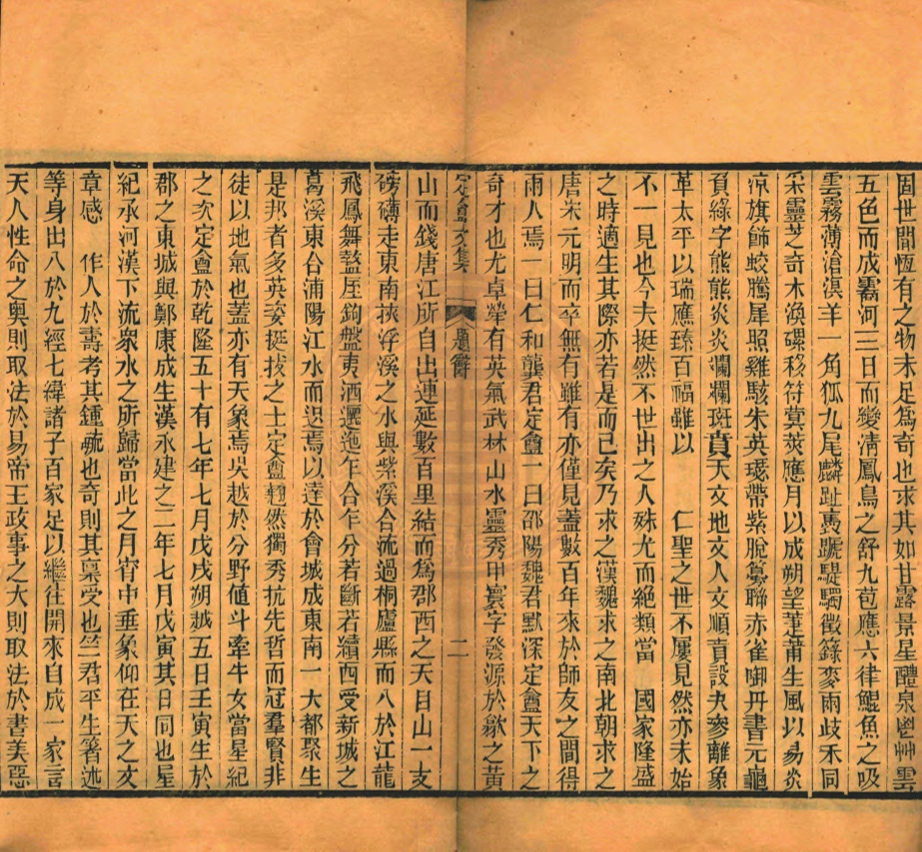 固世間恆有之物未足爲奇也求其如甘露景星醴泉鬯艸雲
五色而成靄河三日而變淸鳳鳥之舒九苞應六律鯤魚之吸
雲霧薄滄溟羊一角狐九尾麟趾裊蹏騠驈徵錄麥雨歧禾同
朵靈芝之奇木渙螺移符蓂莢應月以成朔望萐莆生風以易炎
涼旗飾蛟騰犀照雞駭朱英璦帶紫脫纂聯赤雀啣丹書元龜
負綠字熊熊炎炎瀾瀾斑賁天文地文人文順育設夬麥離象
革太平以瑞應臻百福雖以　仁聖之世不屢見然亦未始
不一見也今夫挺然不世出之人殊尤而絕類當　國家隆盛
之時適生其際亦若是而已矣乃求之漢魏求之南北朝求之
唐宋元明而卒無有雖有亦僅見蓋數百年來於師友之間得
兩人焉一曰仁和龔君定盦一曰邵陽魏君默深定盦天下之
奇才也尤卓犖有英氣武林山水靈秀甲寰宇發源於歙之黃
定盦文集　題辭　二
山而錢唐江所自出連延數百里結而爲郡西之天目山一支
磅礴走東南挾浮溪之水與柴溪合流過桐廬縣而入於江龍
飛鳳舞盩厔鉤盤夷洒邐迤乍合乍分若斷若續西受新城之
葛溪東合浦陽江水而迟焉以達於會城成東南一大都聚生
是邦者多英姿挺拔之士定盦翹然獨秀抗先哲而冠羣賢非
徒以地氣也蓋亦有天象焉吳越於分野値斗牽牛女當星紀
之次定盦於乾隆五十有七年七月戊戌朔越五日壬寅生於
郡之東城與鄭康成生漢永建之二年七月戊寅其日同也星
紀承河漢下流衆水之所歸當此之月宵中垂象仰在天之文
章感　作人於壽考其鍾毓也奇則其稟受也竺君平生箸述
等身出入於九經七緯諸子百家足以繼往開來自成一家言
天人性命之奧則取法於易帝王政事之大則取法於書美惡